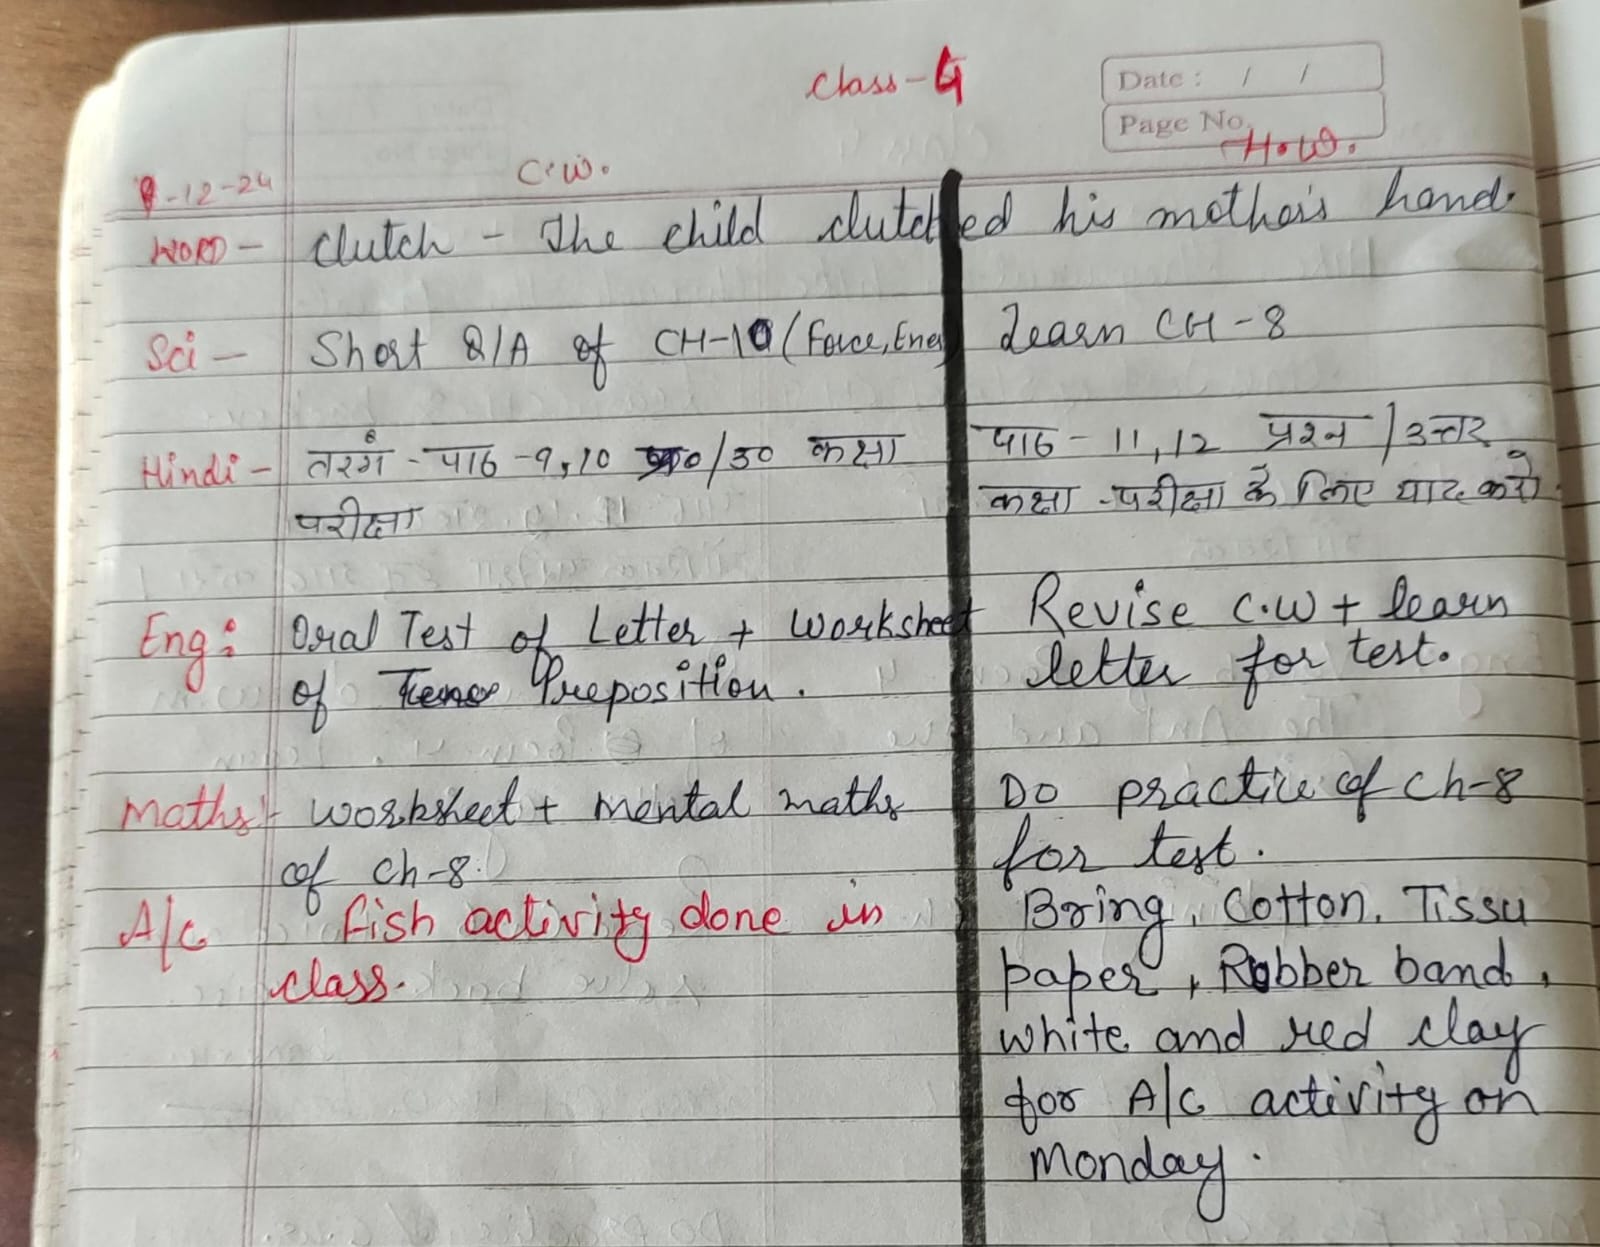 Class-4
Date : / /
Page No.
C.W.
H.W.
-12-24
WORD - Clutch - The child clutched his mother's hand.
Sci - Short Q/A of CH-10 (Force, Ener
Learn CH-8
Hindi - तरंग - पाठ - 9, 10 प्र0/उ0 कक्षा
परीक्षा
पाठ - 11, 12 प्रश्न / उत्तर
कक्षा - परीक्षा के लिए याद करो
Eng: Oral Test of Letter + Worksheet
of Preposition.
Revise C.W + learn
letter for test.
Maths:- worksheet + mental maths
of ch-8.
Do practice of Ch-8
for test.
A/C fish activity done in
class.
Bring, Cotton, Tissu
paper, Rubber band,
white and red clay
for A/C activity on
Monday.